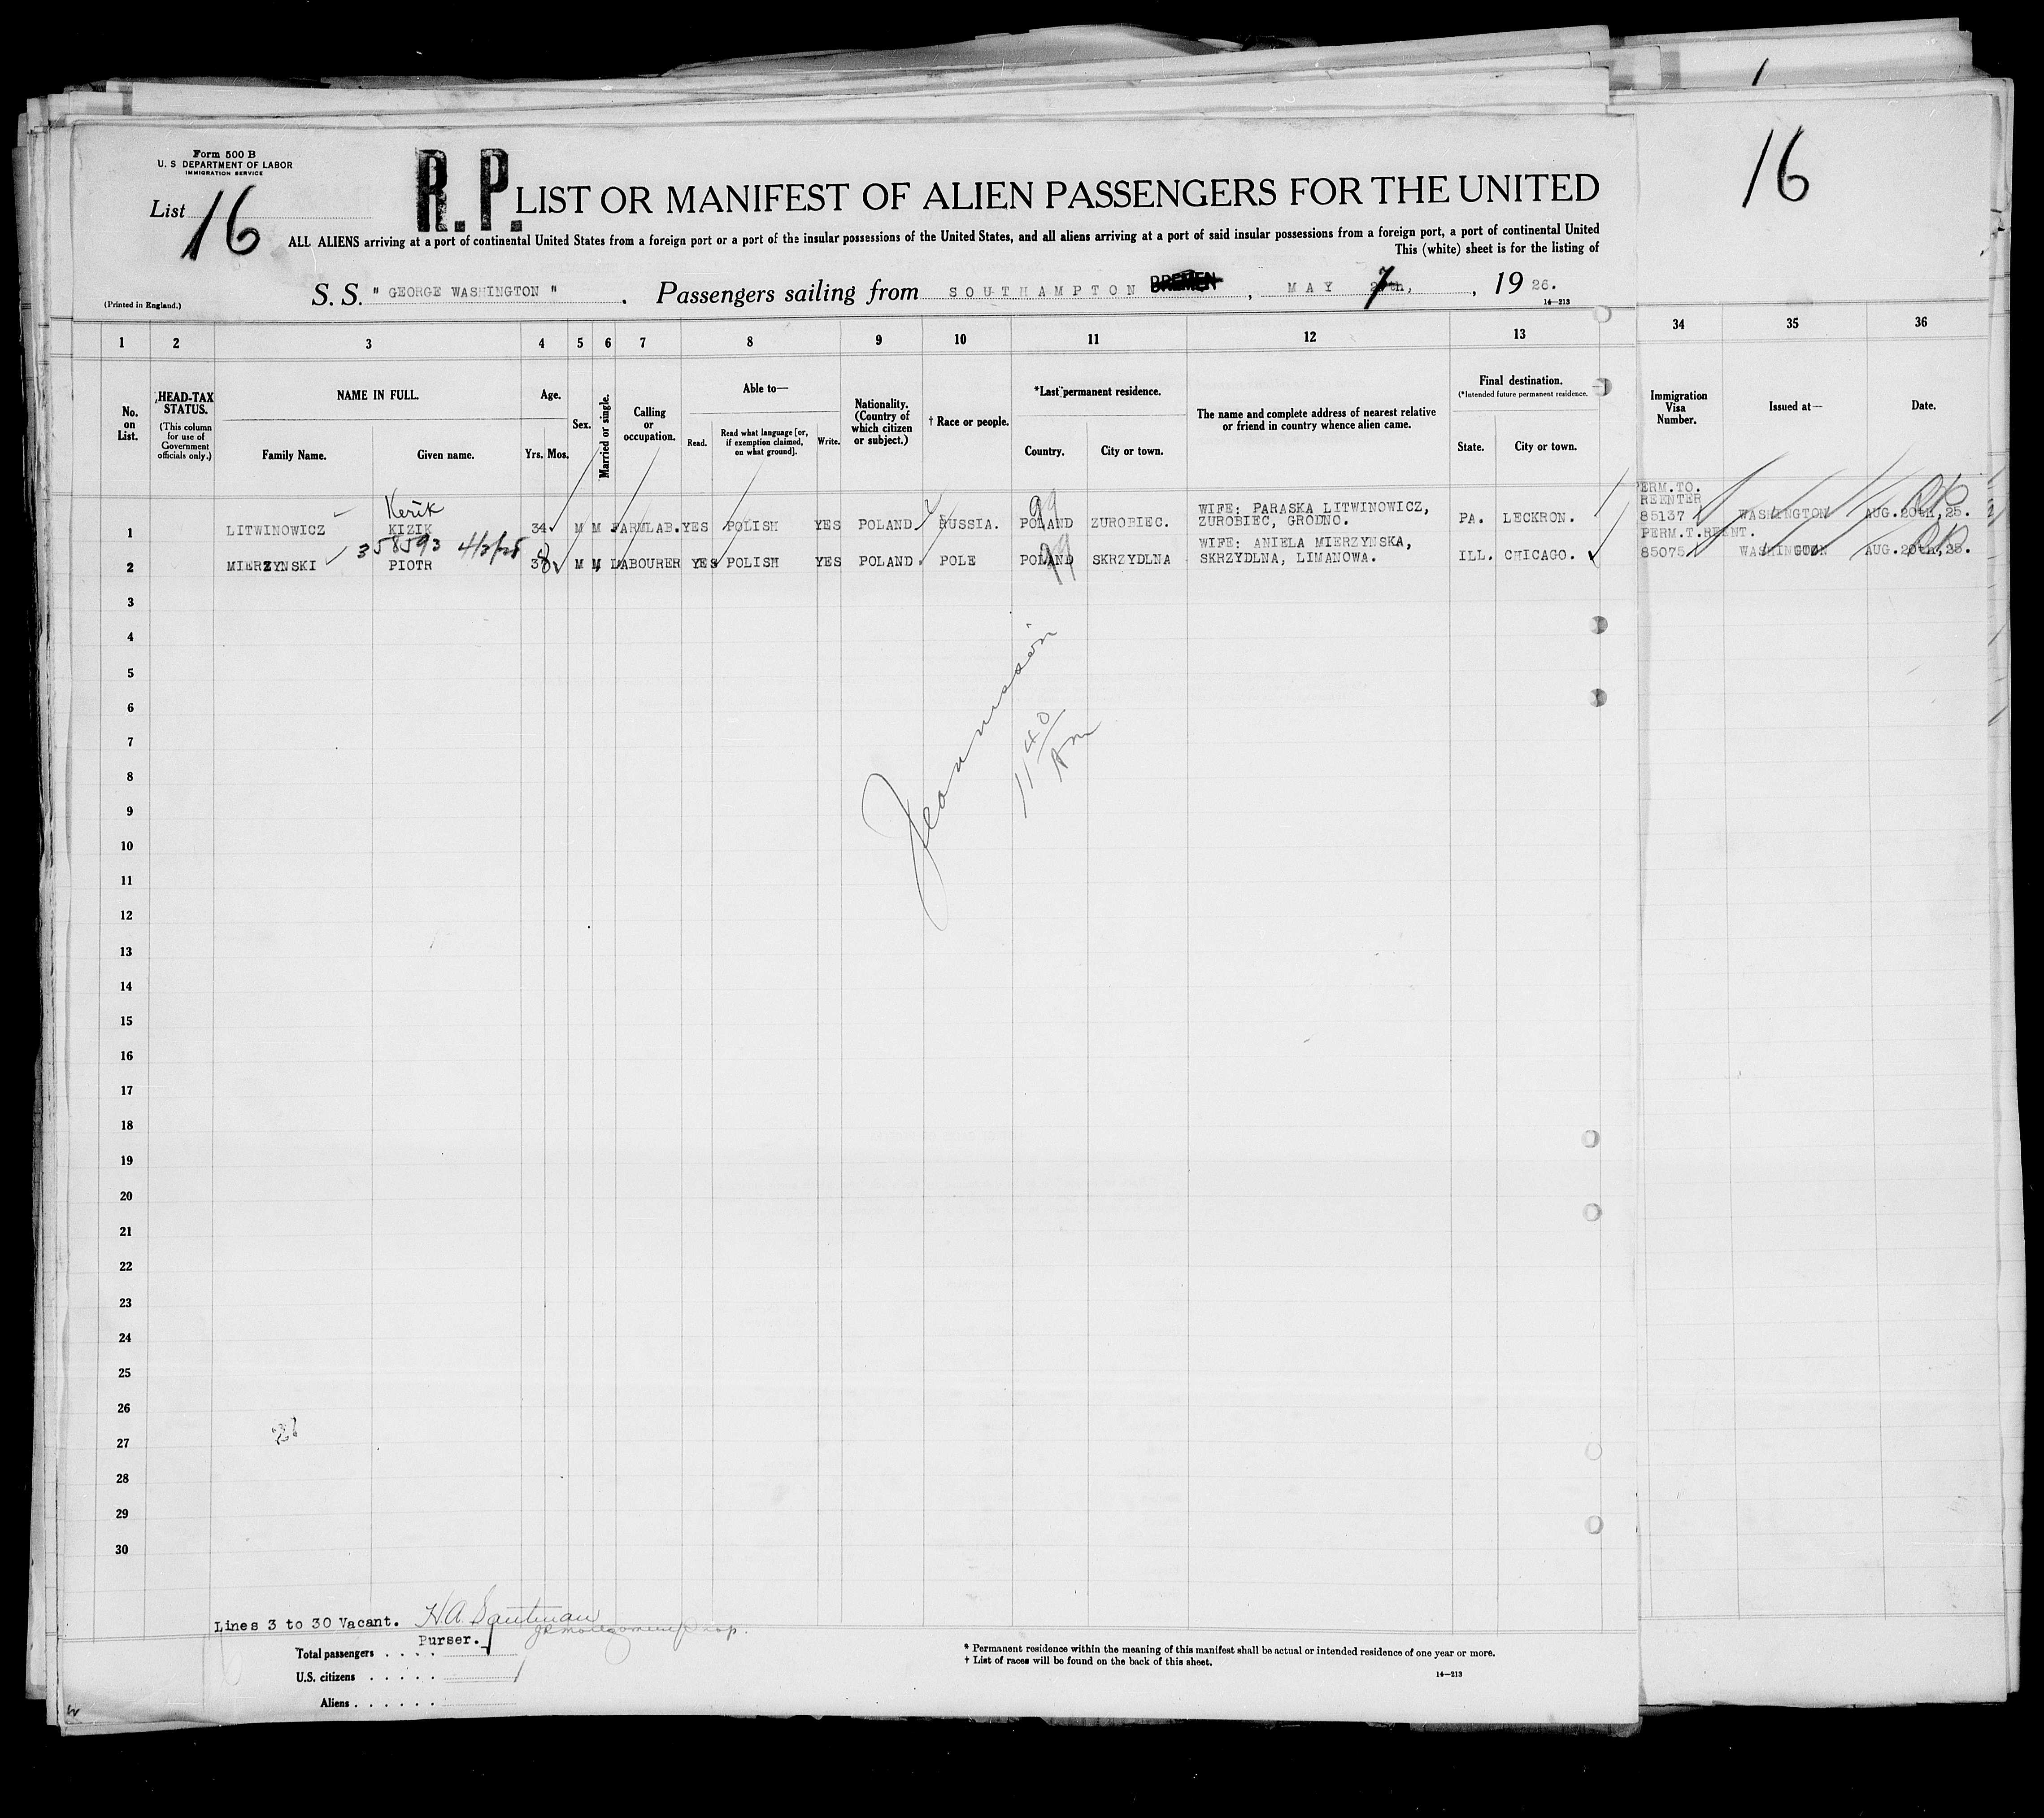 Form 500 B
U. S DEPARTMENT OF LABOR
IMMIGRATION SERVICE
List 16
R. P. LIST OR MANIFEST OF ALIEN PASSENGERS FOR THE UNITED
16
ALL ALIENS arriving at a port of continental United States from a foreign port or a port of the insular possessions of the United States, and all aliens arriving at a port of said insular possessions from a foreign port, a port of continental United
This (white) sheet is for the listing of
(Printed in England.)
S. S. " GEORGE WASHINGTON " . Passengers sailing from SOUTHAMPTON BREMEN , MAY 7 , 19 26.
14—213
1 2 3 4 5 6 7 8 9 10 11 12 13 34 35 36
No. on List.
HEAD-TAX STATUS.
(This column for use of Government officials only.)
NAME IN FULL.
Family Name. Given name.
Age.
Yrs. Mos.
Sex.
Married or single.
Calling or occupation.
Able to—
Read. Read what language [or, if exemption claimed, on what ground]. Write.
Nationality. (Country of which citizen or subject.)
† Race or people.
*Last permanent residence.
Country. City or town.
The name and complete address of nearest relative or friend in country whence alien came.
Final destination.
(*Intended future permanent residence.
State. City or town.
Immigration Visa Number.
Issued at—
Date.
Kerik
99
WIFE: PARASKA LITWINOWICZ,
PERM.TO.
REENTER
1 LITWINOWICZ KIZIK 34 M M FARMLAB. YES POLISH YES POLAND RUSSIA. POLAND ZUROBIEC. ZUROBIEC, GRODNO. PA. LECKRON. 85137 WASHINGTON AUG.20th,25.
358593 4/3/28
WIFE: ANIELA MIERZYNSKA,
PERM.T.REENT.
2 MIERZYNSKI PIOTR 38 M M LABOURER YES POLISH YES POLAND POLE POLAND 99 SKRZYDLNA SKRZYDLNA, LIMANOWA. ILL. CHICAGO. 85075 WASHINGTON AUG.20th,25.
3
4
5
6
7
8
9
10
11
12
13
14
15
16
17
18
19
20
21
22
23
24
25
26
27
28
29
30
11 40
Am
Lines 3 to 30 Vacant. H.A. Sautman
Purser.
Total passengers . . . .
U.S. citizens . . . . .
Aliens . . . . . .
* Permanent residence within the meaning of this manifest shall be actual or intended residence of one year or more.
† List of races will be found on the back of this sheet.
14—213